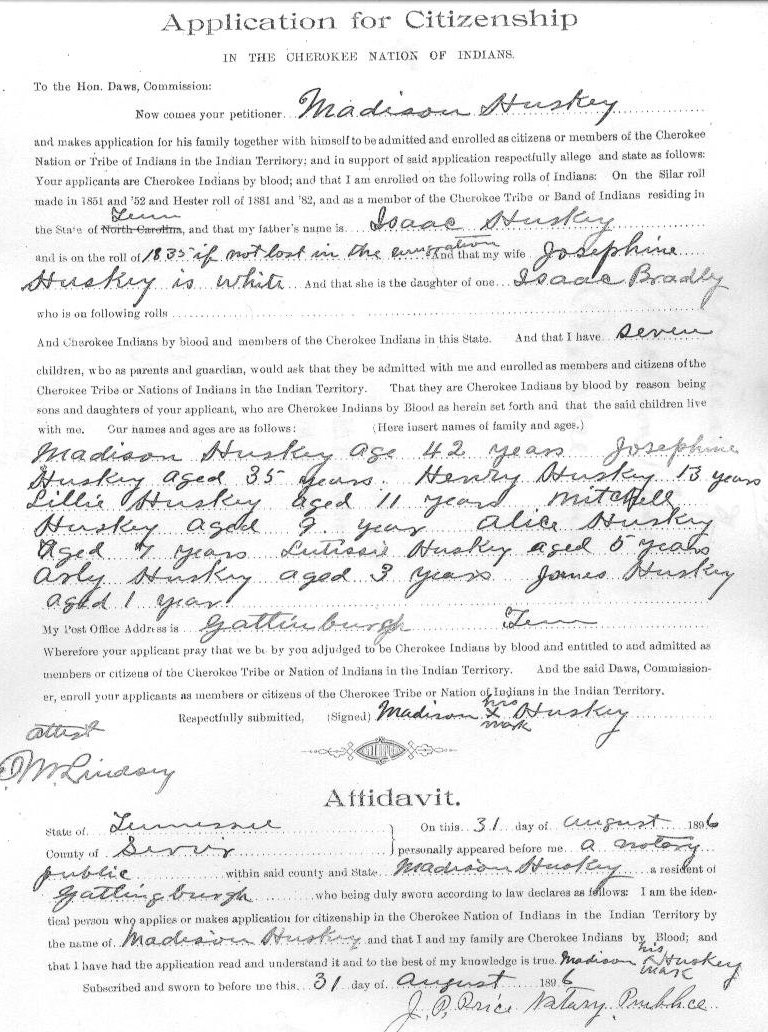 Application for Citizenship
IN THE CHEROKEE NATION OF INDIANS.
To the Hon. Daws, Commission:
Now comes your petitioner Madison Huskey
and makes application for his family together with himself to be admitted and enrolled as citizens or members of the Cherokee
Nation or Tribe of Indians in the Indian Territory; and in support of said application respectfully allege and state as follows:
Your applicants are Cherokee Indians by blood; and that I am enrolled on the following rolls of Indians: On the Silar roll
made in 1851 and '52 and Hester roll of 1881 and '82, and as a member of the Cherokee Tribe or Band of Indians residing in
Tenn
the State of North Carolina, and that my father's name is Isaac Huskey
and is on the roll of 1835 if not lost in the emigration And that my wife Josephine
Huskey is white And that she is the daughter of one Isaac Bradly
who is on following rolls
And Cherokee Indians by blood and members of the Cherokee Indians in this State. And that I have seven
children, who as parents and guardian, would ask that they be admitted with me and enrolled as members and citizens of the
Cherokee Tribe or Nations of Indians in the Indian Territory. That they are Cherokee Indians by blood by reason being
sons and daughters of your applicant, who are Cherokee Indians by Blood as herein set forth and that the said children live
with me. Our names and ages are as follows: (Here insert names of family and ages.)
Madison Huskey age 42 years Josephine
Huskey aged 35 years. Henry Huskey 13 years
Lillie Huskey aged 11 years Mitchell
Huskey aged 9 year Alice Huskey
aged 7 years Lutissie Huskey aged 5 years
Arly Huskey aged 3 years James Huskey
aged 1 year
My Post Office Address is Gattinburgh Tenn
Wherefore your applicant pray that we be by you adjudged to be Cherokee Indians by blood and entitled to and admitted as
members or citizens of the Cherokee Tribe or Nation of Indians in the Indian Territory. And the said Daws, Commission-
er, enroll your applicants as members or citizens of the Cherokee Tribe or Nation of Indians in the Indian Territory.
Respectfully submitted, (Signed) Madison his x mark Huskey
attest
Lindsey
Affidavit.
State of Tennessee On this 31 day of August 1896
County of Sevier personally appeared before me a notary
public within said county and State Madison Huskey a resident of
Gattingburgh who being duly sworn according to law declares as follows: I am the iden-
tical person who applies or makes application for citizenship in the Cherokee Nation of Indians in the Indian Territory by
the name of Madison Huskey and that I and my family are Cherokee Indians by Blood; and
that I have had the application read and understand it and to the best of my knowledge is true. Madison his x mark Huskey
Subscribed and sworn to before me this 31 day of August 1896
J. P. Price Notary Publice